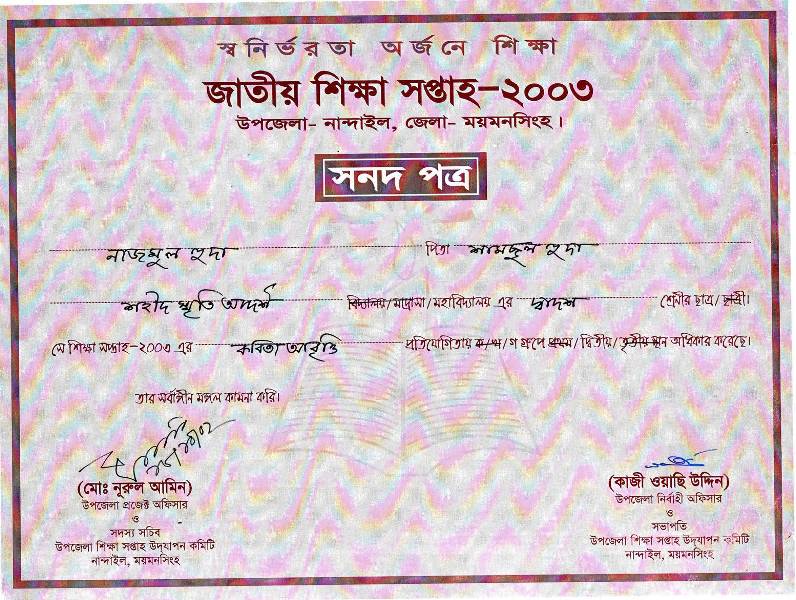 স্বনির্ভরতা অর্জনে শিক্ষা
জাতীয় শিক্ষা সপ্তাহ-২০০৩
উপজেলা- নান্দাইল, জেলা- ময়মনসিংহ।
সনদ পত্র
নাজমুল হুদা পিতা শামছুল হুদা
শহীদ স্মৃতি আদর্শ বিদ্যালয়/মাদ্রাসা/মহাবিদ্যালয় এর দ্বাদশ শ্রেনীর ছাত্র/ছাত্রী।
সে শিক্ষা সপ্তাহ-২০০৩ এর কবিতা আবৃত্তি প্রতিযোগিতায় ক/খ/গ গ্রুপে প্রথম/দ্বিতীয়/তৃতীয় স্থান অধিকার করেছে।
তার সর্বাঙ্গীন মঙ্গল কামনা করি।
(মোঃ নূরুল আমিন)
উপজেলা প্রজেক্ট অফিসার
ও
সদস্য সচিব
উপজেলা শিক্ষা সপ্তাহ উদ্‌যাপন কমিটি
নান্দাইল, ময়মনসিংহ
(কাজী ওয়াছি উদ্দিন)
উপজেলা নির্বাহী অফিসার
ও
সভাপতি
উপজেলা শিক্ষা সপ্তাহ উদ্‌যাপন কমিটি
নান্দাইল, ময়মনসিংহ